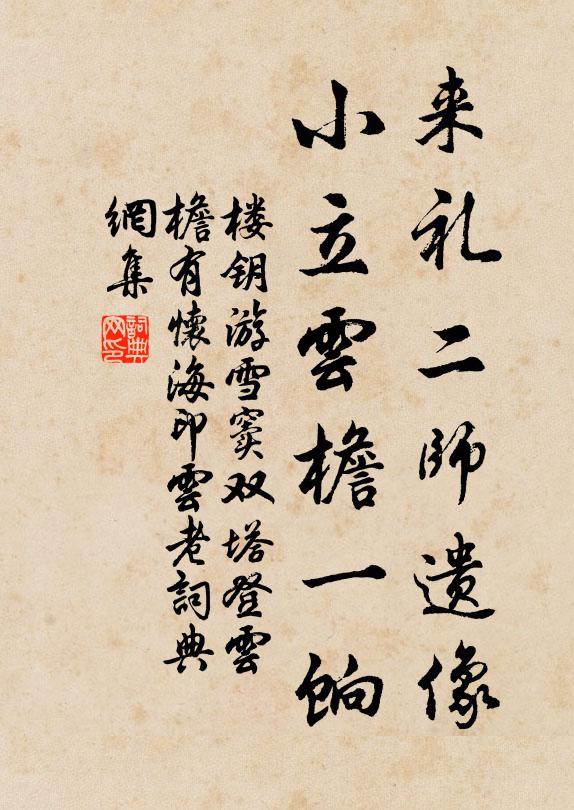 来礼二師遗像
小立雲檐一饷
楼钥游雪窦双塔登雲
檐有懷海印雲老詞典
網集
詞典網印